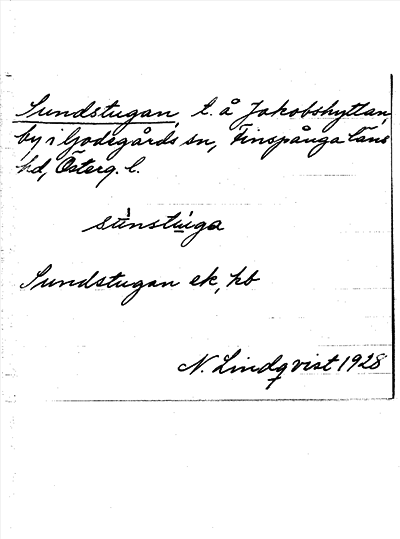 Sundstugan, l. å Jakobshyttan,
by i Godegårds sn, Finspånga läns
hd, Österg. l.
sùnstúga
Sundstugan ek, hb
N. Lindqvist 1928